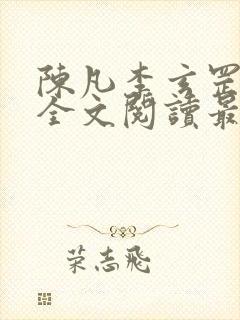 陳凡李玄罡
全文閱讀最
荣志飛